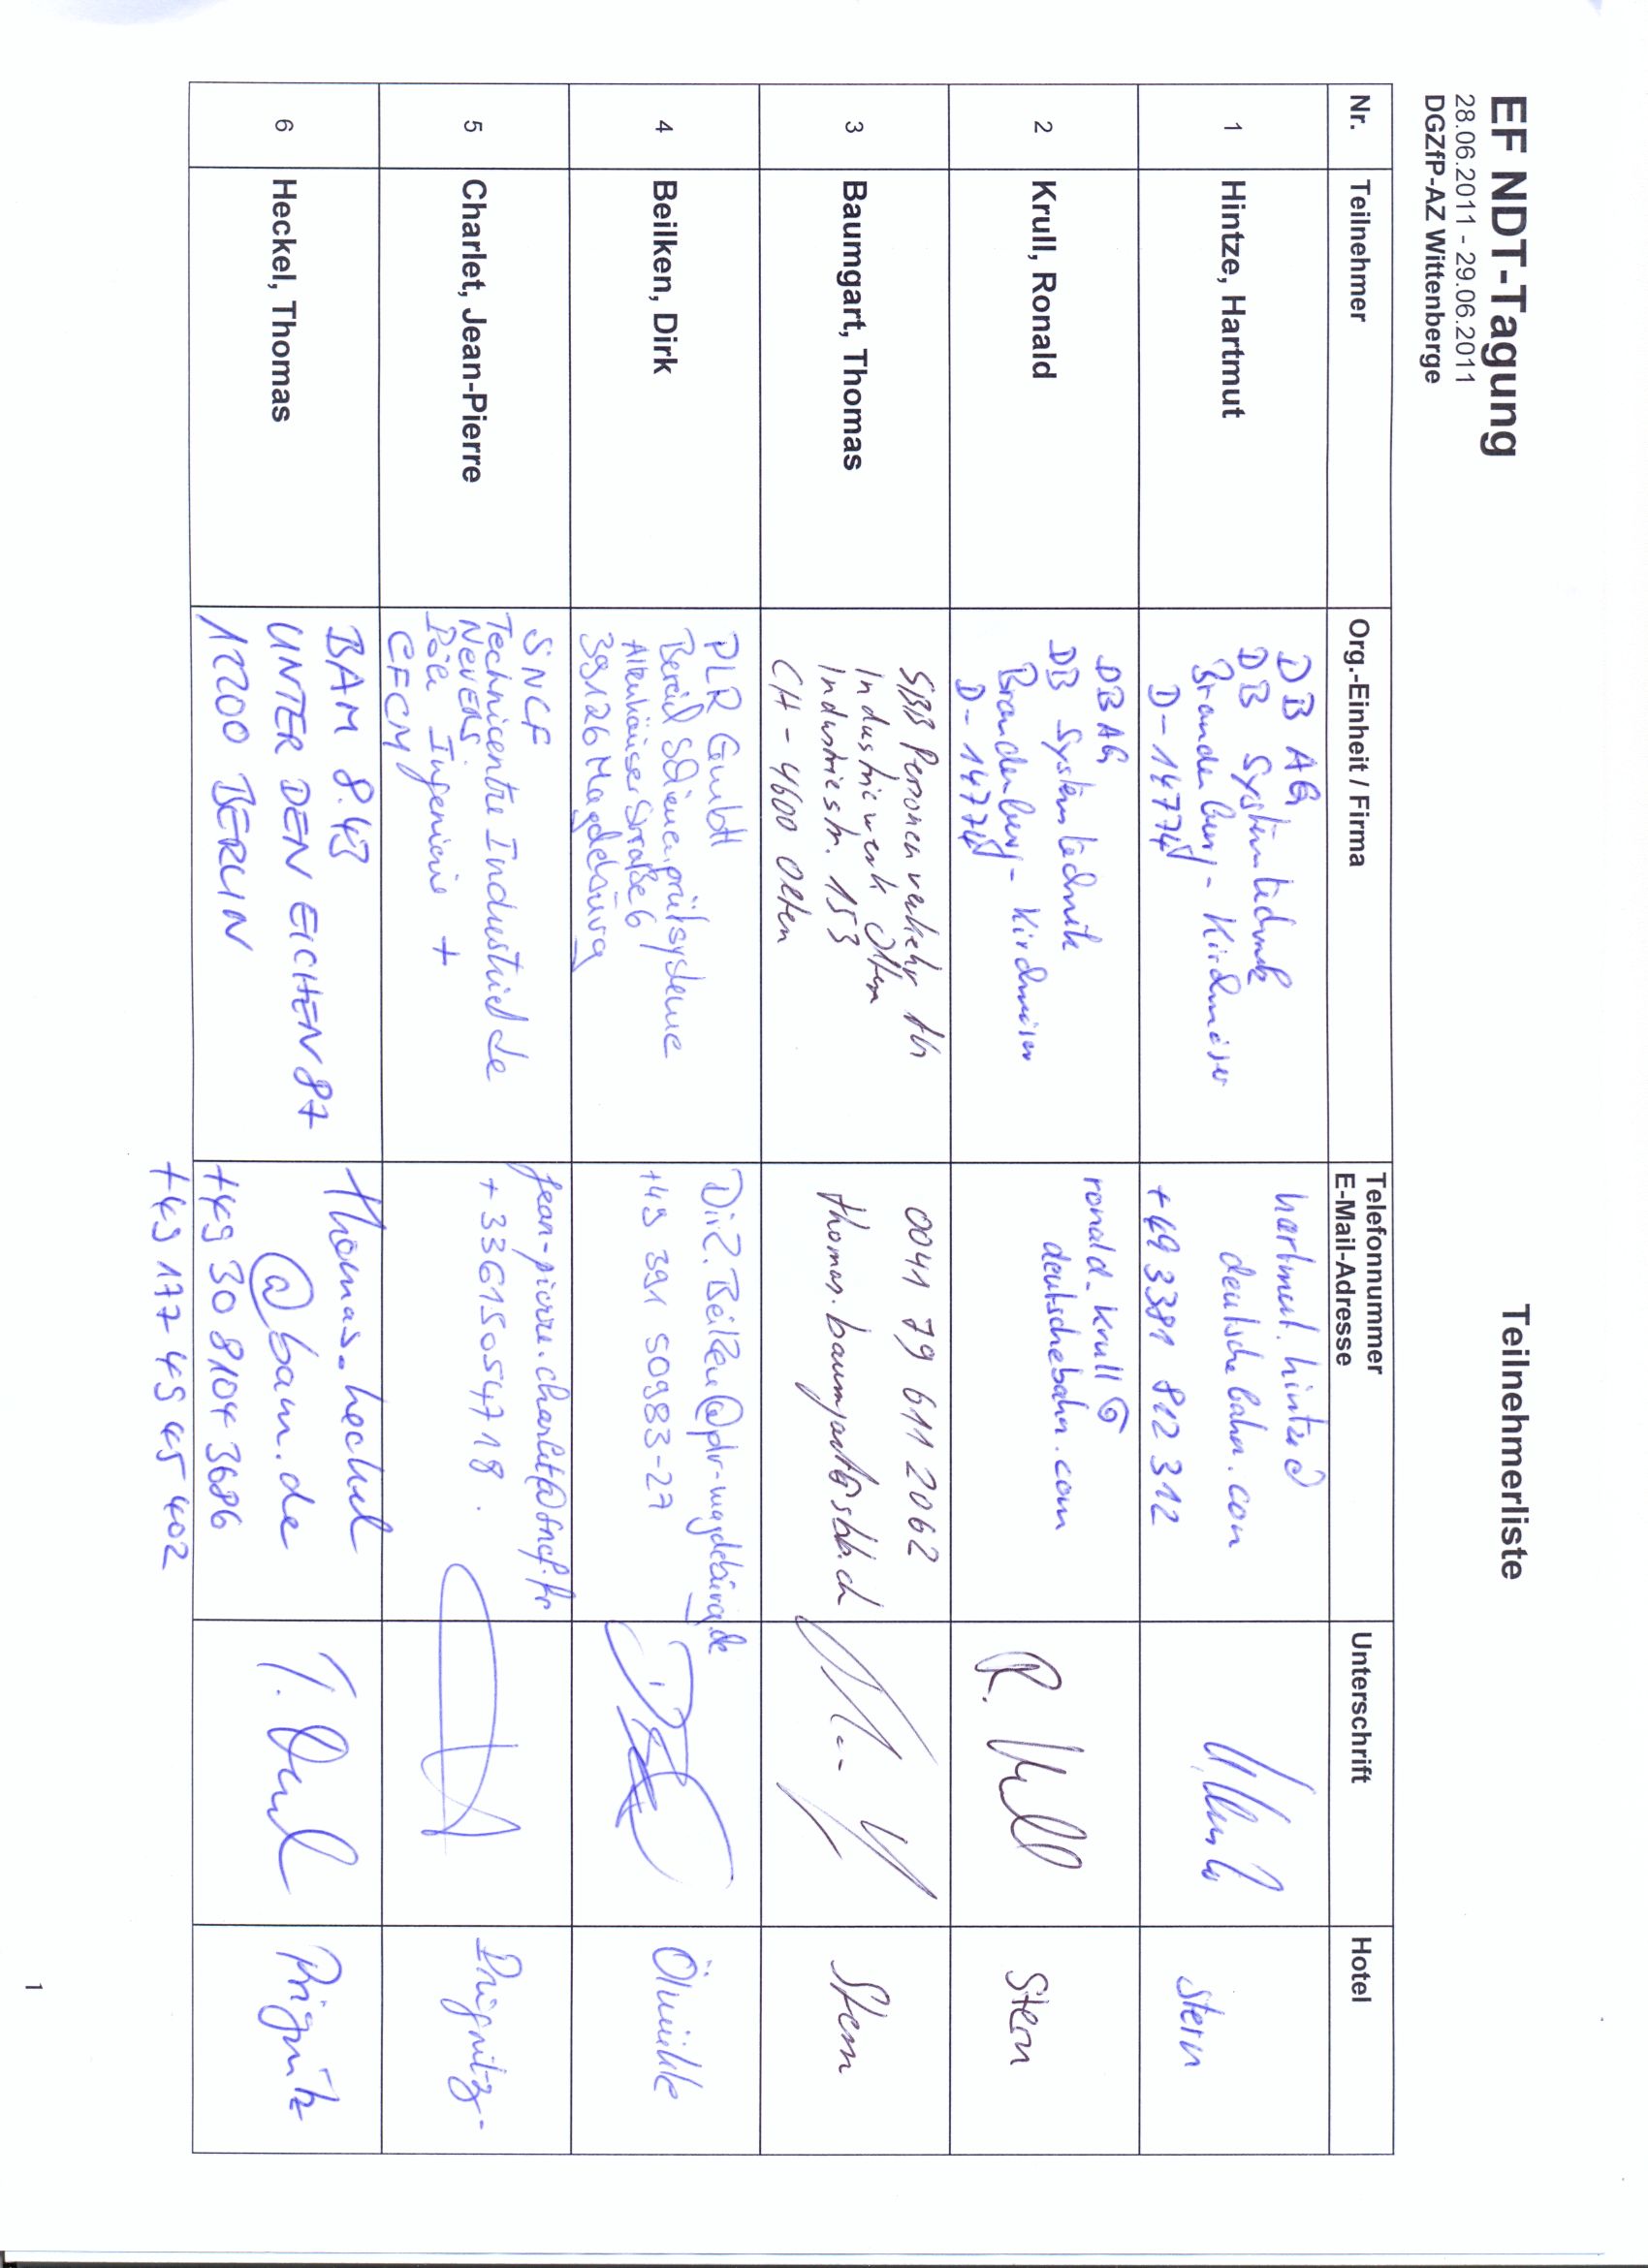 EF NDT-Tagung
28.06.2011 - 29.06.2011
DGZfP-AZ Wittenberge
Teilnehmerliste
Nr.
Teilnehmer
Org.-Einheit / Firma
Telefonnummer
E-Mail-Adresse
Unterschrift
Hotel
1
Hintze, Hartmut
DB AG
DB Systemtechnik
Brandenburg-Kirchmöser
D-14774
hartmut.hintze@
deutschebahn.com
+49 3381 812 312
Stern
2
Krull, Ronald
DB AG
DB Systemtechnik
Brandenburg-Kirchmöser
D-14774
ronald.krull@
deutschebahn.com
R. Krull
Stern
3
Baumgart, Thomas
SBB Personenverkehr
Industriewerk Olten
Industriestr. 153
CH - 4600 Olten
0041 79 611 2062
thomas.baumgart@sbb.ch
Stern
4
Beilken, Dirk
PLR GmbH
Bereich Schienenprüfsysteme
Altenhäuser Straße 6
39126 Magdeburg
Dirk.Beilken@plr-magdeburg.de
+49 391 50983-27
Ölmühle
5
Charlet, Jean-Pierre
SNCF
Technicentre Industriel de
Nevers
Pôle Ingénierie +
CFCM
jean-pierre.charlet@sncf.fr
+ 33615054718.
Prignitz-
6
Heckel, Thomas
BAM 8.43
UNTER DEN EICHEN 87
12200 BERLIN
thomas.heckel
@bam.de
+49 30 8104 3686
+49 177 49 45 402
T. Heckel
Prignitz
1